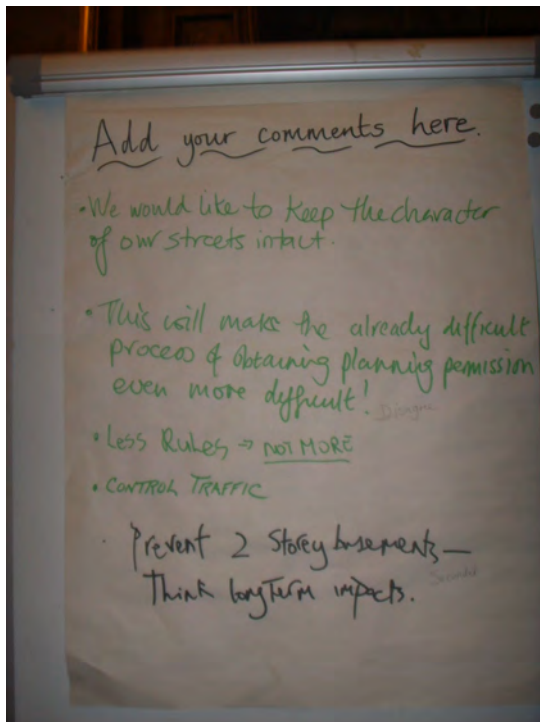 Add your comments here.
• We would like to keep the character
of our streets intact.
• This will make the already difficult
process of obtaining planning permission
even more difficult!
Disagree
• Less Rules → NOT MORE
• CONTROL TRAFFIC
• Prevent 2 Storey basements —
Think long Term impacts.
Seconded